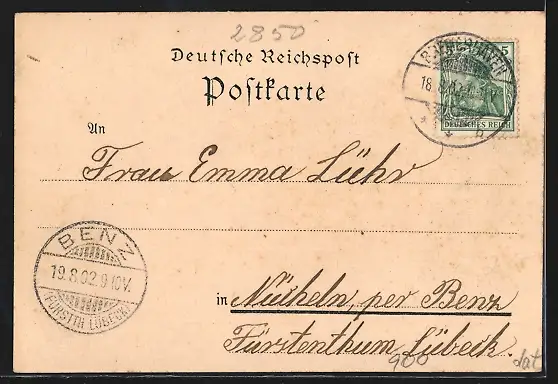 2850
Deutsche Reichspost
Postkarte
BREMERHAVEN
18.8.02
b
5
DEUTSCHES REICH
An
Frau Emma Lühr
BENZ
19.8.02.9-10V.
(FÜRSTTH LÜBECK)
in Nücheln, per Benz
Fürstenthum Lübeck.
900
dat.